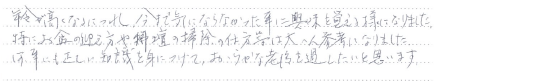 年令が高くなるにつれ、今まで気にならなかった事に興味を覚える様になりました。
特にお盆の迎え方や神壇の掃除の仕方等は大へん参考になりました
何事にも正しい知識を身につけて、おおらかな老后を過したいと思います。